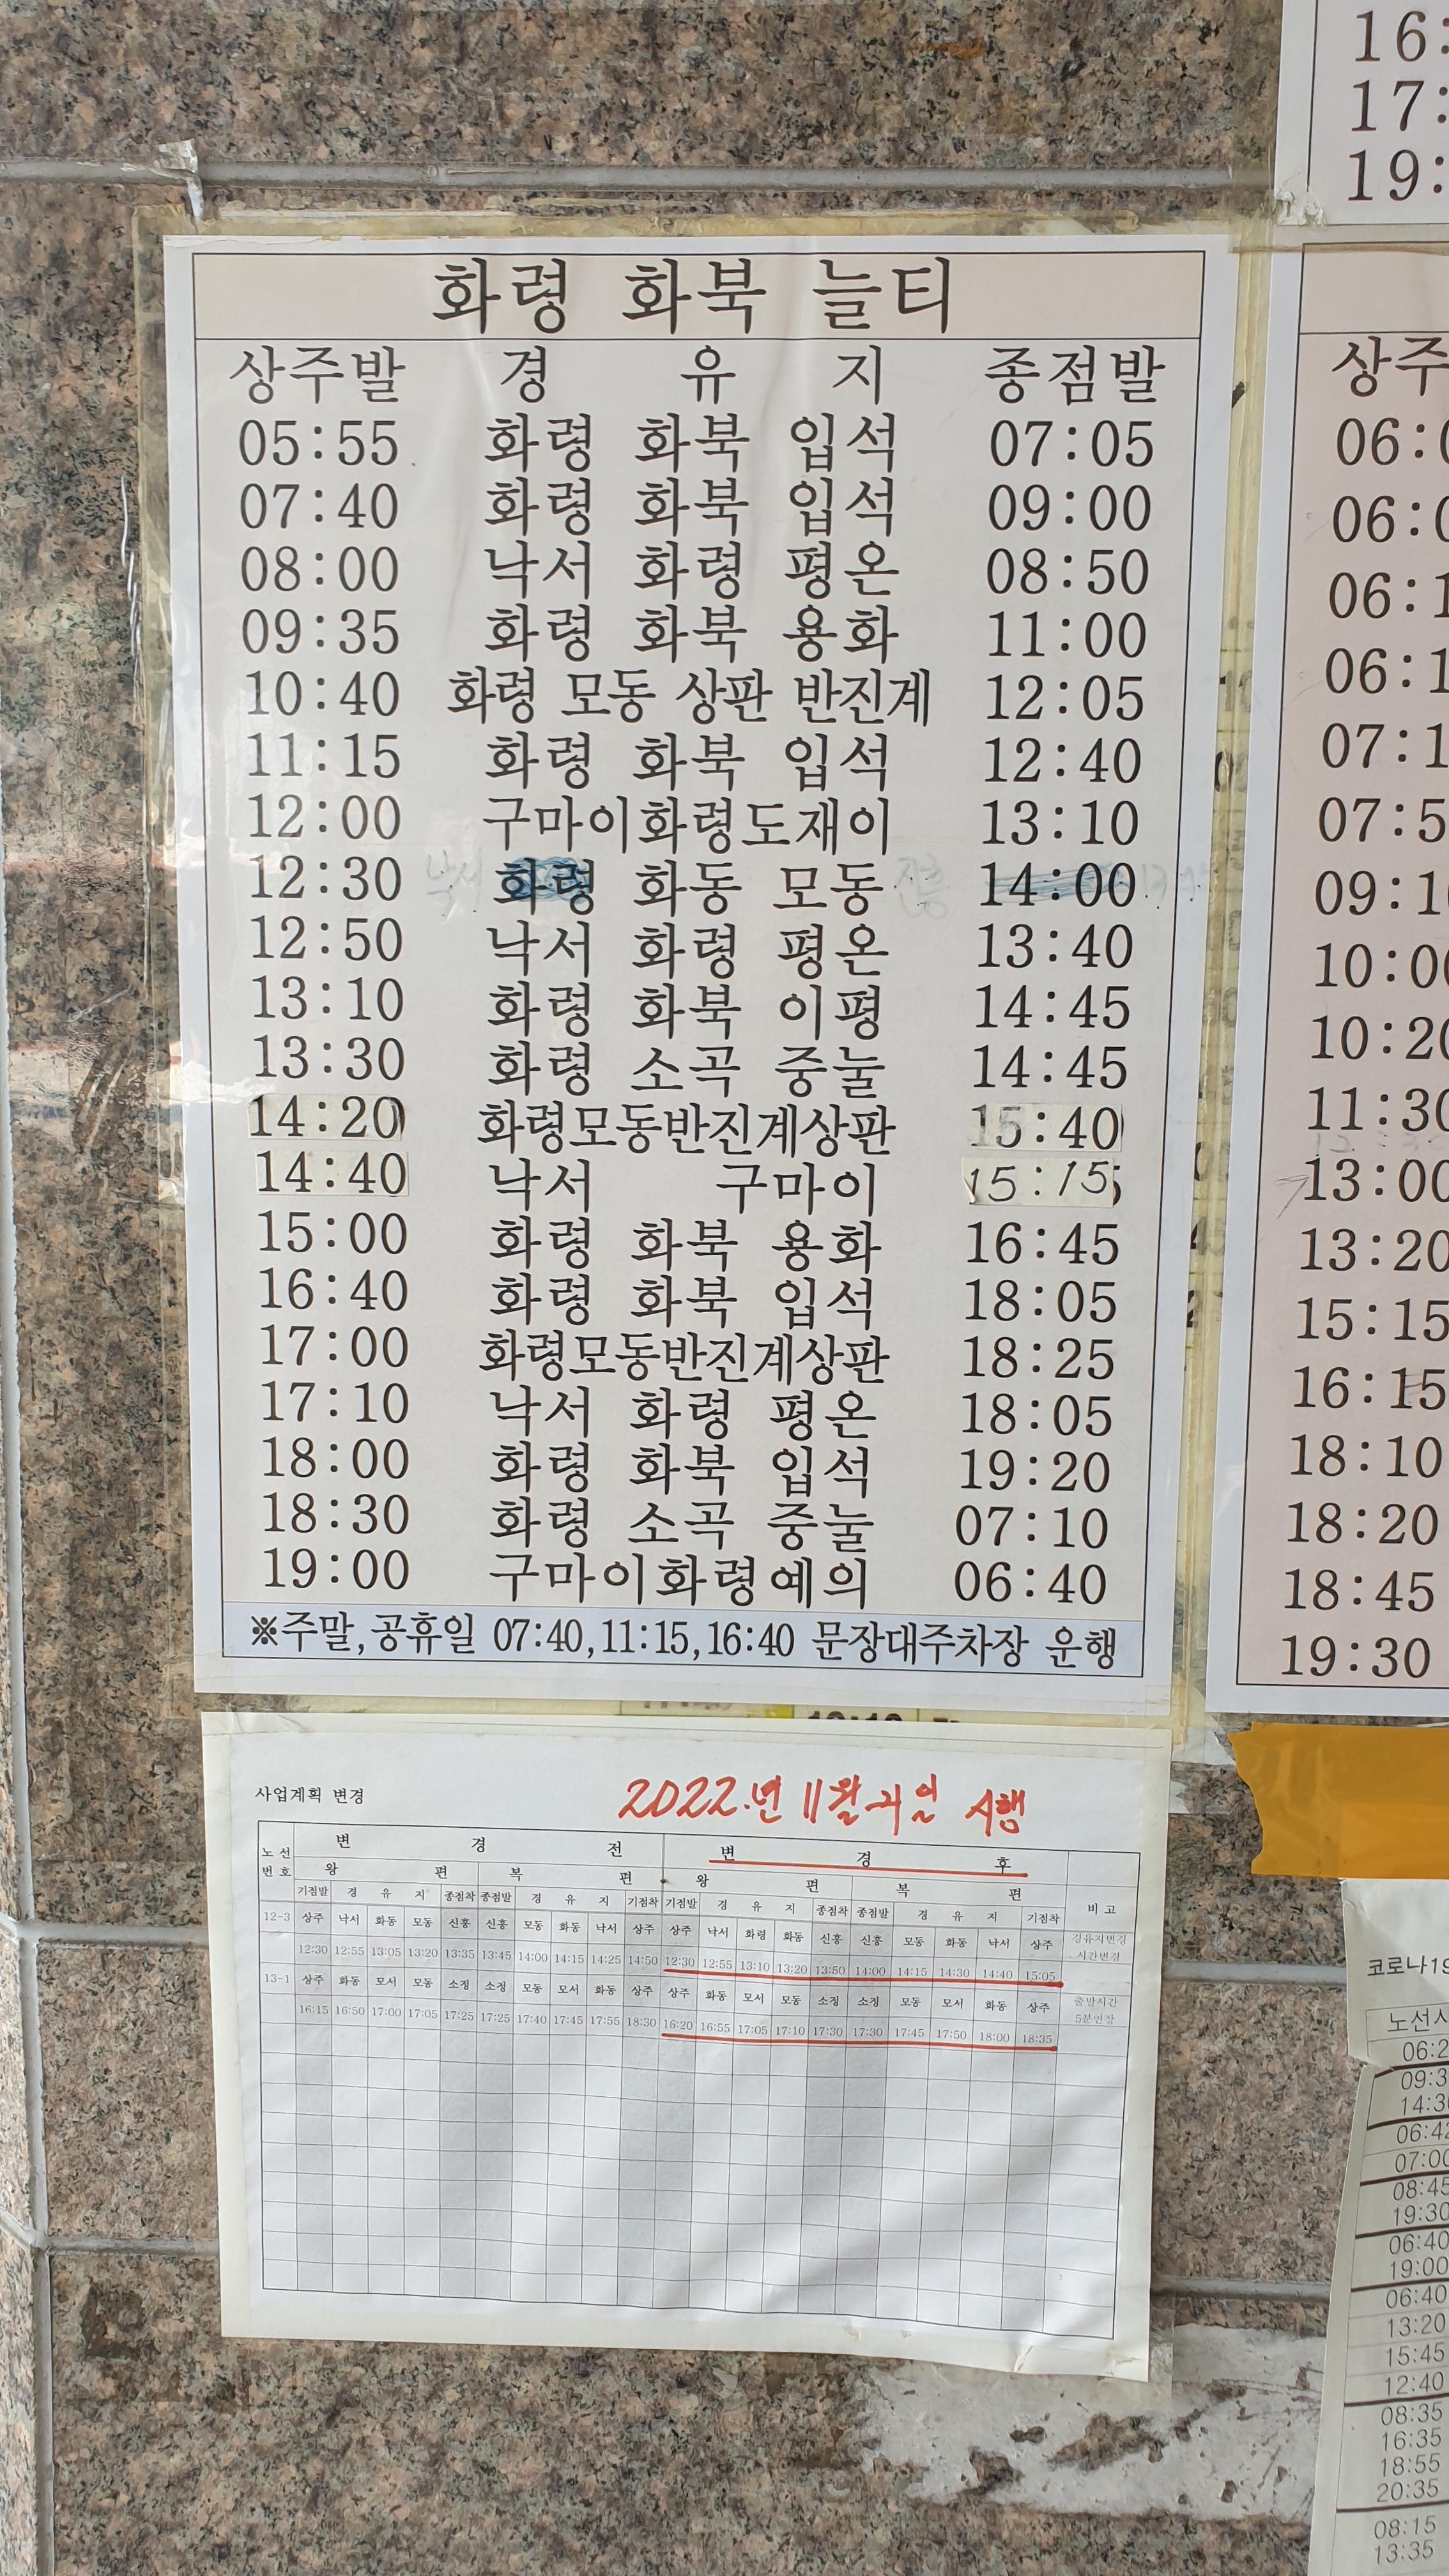 화령 화북 늘티
상주발 경 유 지 종점발
05:55 화령 화북 입석 07:05
07:40 화령 화북 입석 09:00
08:00 낙서 화령 평온 08:50
09:35 화령 화북 용화 11:00
10:40 화령 모동 상판 반진계 12:05
11:15 화령 화북 입석 12:40
12:00 구마이화령도재이 13:10
12:30 낙서 화령 화동 모동 14:00
12:50 낙서 화령 평온 13:40
13:10 화령 화북 이평 14:45
13:30 화령 소곡 중눌 14:45
14:20 화령모동반진계상판 15:40
14:40 낙서 구마이 15:15
15:00 화령 화북 용화 16:45
16:40 화령 화북 입석 18:05
17:00 화령모동반진계상판 18:25
17:10 낙서 화령 평온 18:05
18:00 화령 화북 입석 19:20
18:30 화령 소곡 중눌 07:10
19:00 구마이화령예의 06:40
※주말,공휴일 07:40,11:15,16:40 문장대주차장 운행
사업계획 변경 2022.년 11월 일 시행
노선번호 변 경 전 변 경 후 비 고
왕 편 복 편 왕 편 복 편
기점발 경 유 지 종점착 종점발 경 유 지 기점착 기점발 경 유 지 종점착 종점발 경 유 지 기점착
12-3 상주 낙서 화동 모동 신흥 신흥 모동 화동 낙서 상주 상주 낙서 화령 화동 신흥 신흥 모동 화동 낙서 상주 경유지변경
12:30 12:55 13:05 13:20 13:35 13:45 14:00 14:15 14:25 14:50 12:30 12:55 13:10 13:20 13:50 14:00 14:15 14:30 14:40 15:05 시간변경
13-1 상주 화동 모서 모동 소정 소정 모동 모서 화동 상주 상주 화동 모서 모동 소정 소정 모동 모서 화동 상주 출발시간
16:15 16:50 17:00 17:05 17:25 17:25 17:40 17:45 17:55 18:30 16:20 16:55 17:05 17:10 17:30 17:30 17:45 17:50 18:00 18:35 5분연장
16:
17:
19:
상주
06:0
06:0
06:1
06:1
07:1
07:5
09:10
10:00
10:20
11:30
13:00
13:20
15:15
16:15
18:10
18:20
18:45
19:30
코로나19
노선시
06:2
09:3
14:30
06:42
07:00
08:45
19:30
06:40
19:00
06:40
13:20
15:45
12:40
08:35
16:35
18:55
20:35
08:15
13:35